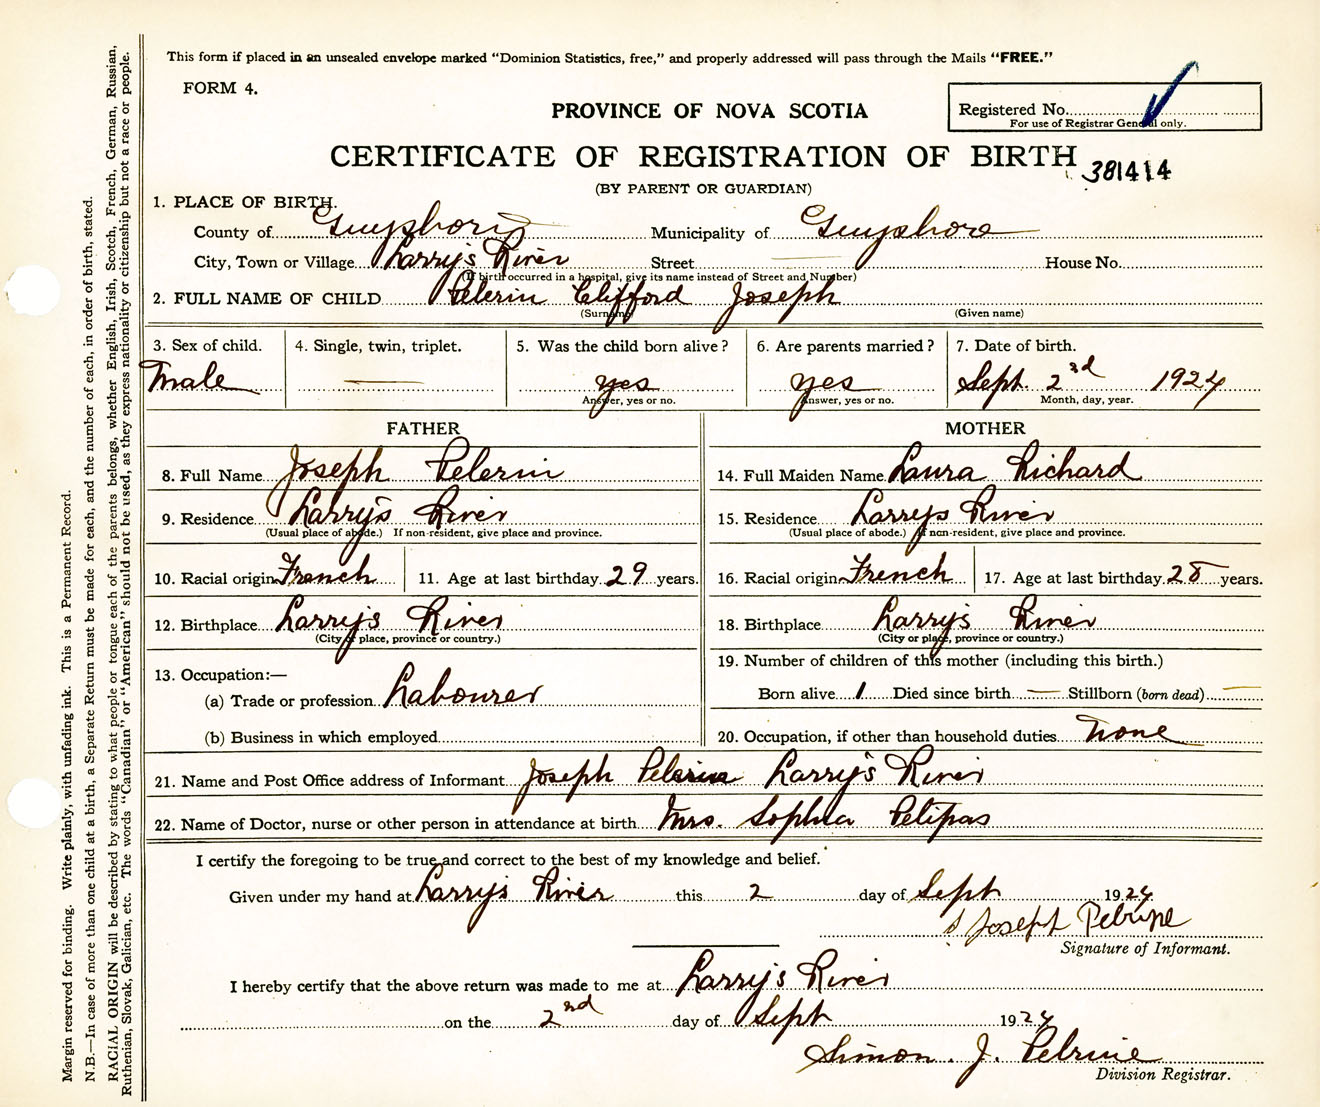 This form if placed in an unsealed envelope marked "Dominion Statistics, free," and properly addressed will pass through the Mails "FREE."
FORM 4.
Registered No.
For use of Registrar General only.
PROVINCE OF NOVA SCOTIA
CERTIFICATE OF REGISTRATION OF BIRTH
381414
(BY PARENT OR GUARDIAN)
1. PLACE OF BIRTH.
County of Guysboro Municipality of Guysboro
City, Town or Village Larry's River Street — House No.
(If birth occurred in a hospital, give its name instead of Street and Number)
2. FULL NAME OF CHILD Pelerin Clifford Joseph
(Surname) (Given name)
3. Sex of child. 4. Single, twin, triplet. 5. Was the child born alive? 6. Are parents married? 7. Date of birth.
Male — yes yes Sept. 2nd 1924
Answer, yes or no. Answer, yes or no. Month, day, year.
FATHER MOTHER
8. Full Name Joseph Pelerin 14. Full Maiden Name Laura Richard
9. Residence Larry's River 15. Residence Larrys River
(Usual place of abode.) If non-resident, give place and province. (Usual place of abode.) If non-resident, give place and province.
10. Racial origin French 11. Age at last birthday 29 years. 16. Racial origin French 17. Age at last birthday 28 years.
12. Birthplace Larry's River 18. Birthplace Larry's River
(City or place, province or country.) (City or place, province or country.)
13. Occupation:— 19. Number of children of this mother (including this birth.)
(a) Trade or profession Labourer Born alive 1 Died since birth — Stillborn (born dead) —
(b) Business in which employed 20. Occupation, if other than household duties None
21. Name and Post Office address of Informant Joseph Pelerin Larry's River
22. Name of Doctor, nurse or other person in attendance at birth Mrs. Sophia Pelipas
I certify the foregoing to be true and correct to the best of my knowledge and belief.
Given under my hand at Larry's River this 2 day of Sept 1924
Joseph Pelrine
Signature of Informant.
I hereby certify that the above return was made to me at Larry's River
on the 2nd day of Sept 1924
Simon. J. Pelrine
Division Registrar.
Margin reserved for binding. Write plainly, with unfading ink. This is a Permanent Record.
N.B.—In case of more than one child at a birth, a Separate Return must be made for each, and the number of each, in order of birth, stated.
RACIAL ORIGIN will be described by stating to what people or tongue each of the parents belongs, whether English, Irish, Scotch, French, German, Russian,
Ruthenian, Slovak, Galician, etc. The words "Canadian" or "American" should not be used, as they express nationality or citizenship but not a race or people.